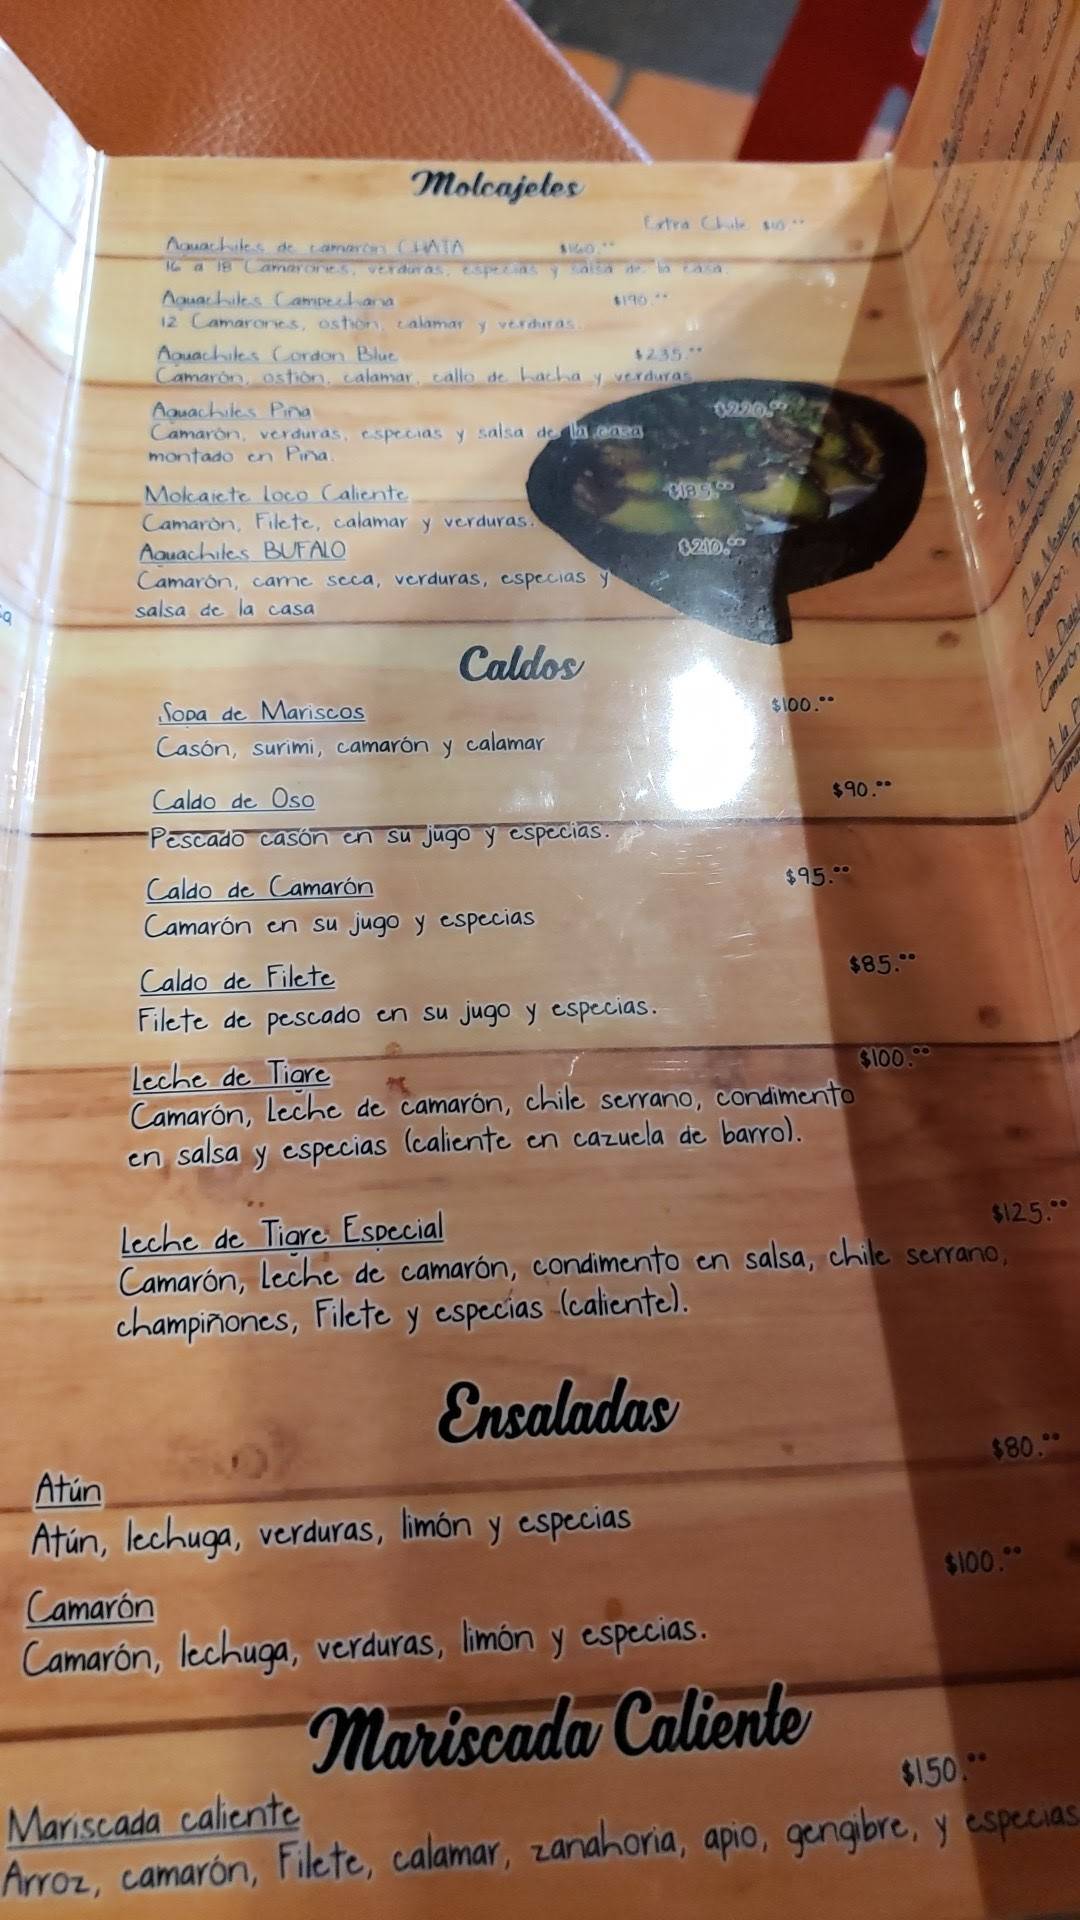 Molcajetes
Extra Chile $10.°°
Aguachiles de camarón CHATA $160.°°
16 a 18 Camarones, verduras, especias y salsa de la casa.
Aguachiles Campechana $190.°°
12 Camarones, ostión, calamar y verduras.
Aguachiles Cordon Blue $235.°°
Camarón, ostión, calamar, callo de hacha y verduras
Aguachiles Piña $220.°°
Camarón, verduras, especias y salsa de la casa
montado en Piña.
Molcajete loco Caliente $185.°°
Camarón, Filete, calamar y verduras.
Aguachiles BUFALO $210.°°
Camarón, carne seca, verduras, especias y
salsa de la casa
Caldos
Sopa de Mariscos $100.°°
Casón, surimi, camarón y calamar
Caldo de Oso $90.°°
Pescado casón en su jugo y especias.
Caldo de Camarón $95.°°
Camarón en su jugo y especias
Caldo de Filete $85.°°
Filete de pescado en su jugo y especias.
Leche de Tigre $100.°°
Camarón, Leche de camarón, chile serrano, condimento
en salsa y especias (caliente en cazuela de barro).
Leche de Tigre Especial $125.°°
Camarón, Leche de camarón, condimento en salsa, chile serrano,
champiñones, Filete y especias (caliente).
Ensaladas
Atún $80.°°
Atún, lechuga, verduras, limón y especias
Camarón $100.°°
Camarón, lechuga, verduras, limón y especias.
Mariscada Caliente
Mariscada caliente $150.°°
Arroz, camarón, Filete, calamar, zanahoria, apio, gengibre, y especias